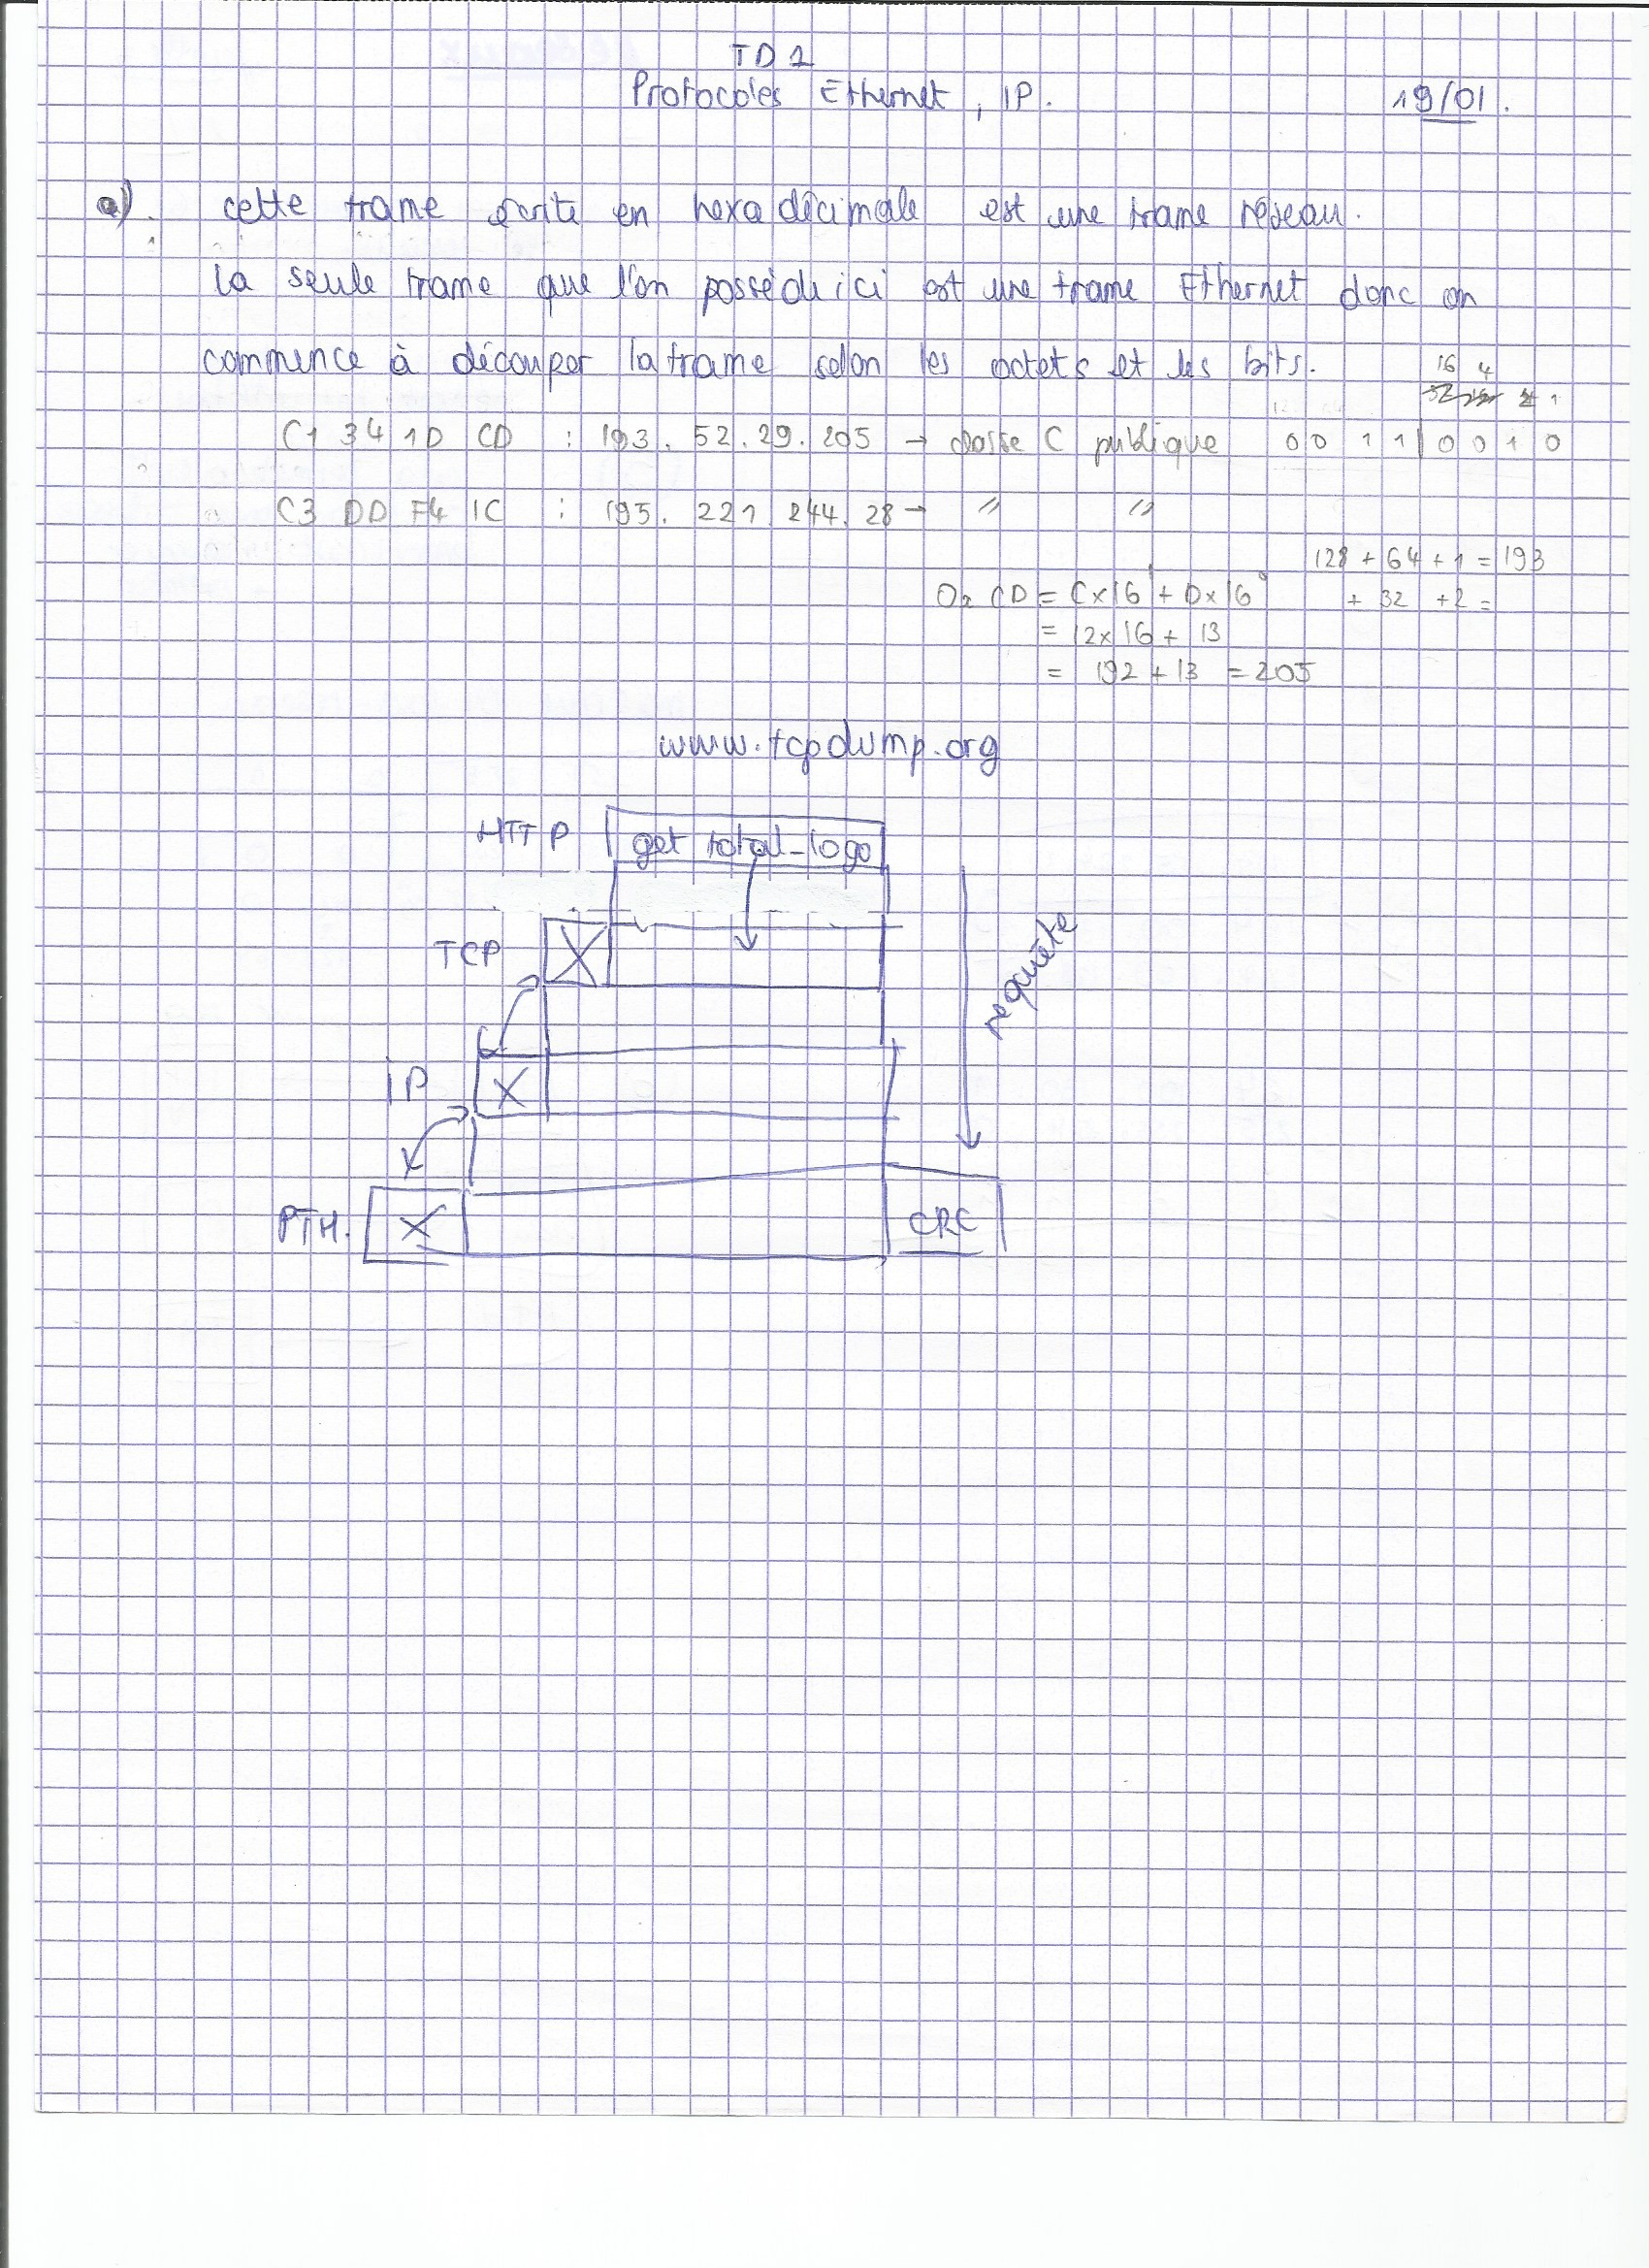 TD1
Protocoles Ethernet, IP.
19/01.
a). cette trame écrite en hexadécimale est une trame réseau.
la seule trame que l'on possède ici est une trame Ethernet donc on
commence à découper la trame selon les octets et les bits.
16 4
1
C1 34 1D CD : 193. 52. 29. 205 → classe C publique 0 0 1 1 | 0 0 1 0
C3 DD F4 1C : 195. 221 244. 28 → " "
128 + 64 + 1 = 193
+ 32 + 2 =
Or CD = C×16¹ + D×16⁰
= 12×16 + 13
= 192 + 13 = 205
www.tcpdump.org
HTTP get total_logo
TCP
requête
IP
ETH. CRC